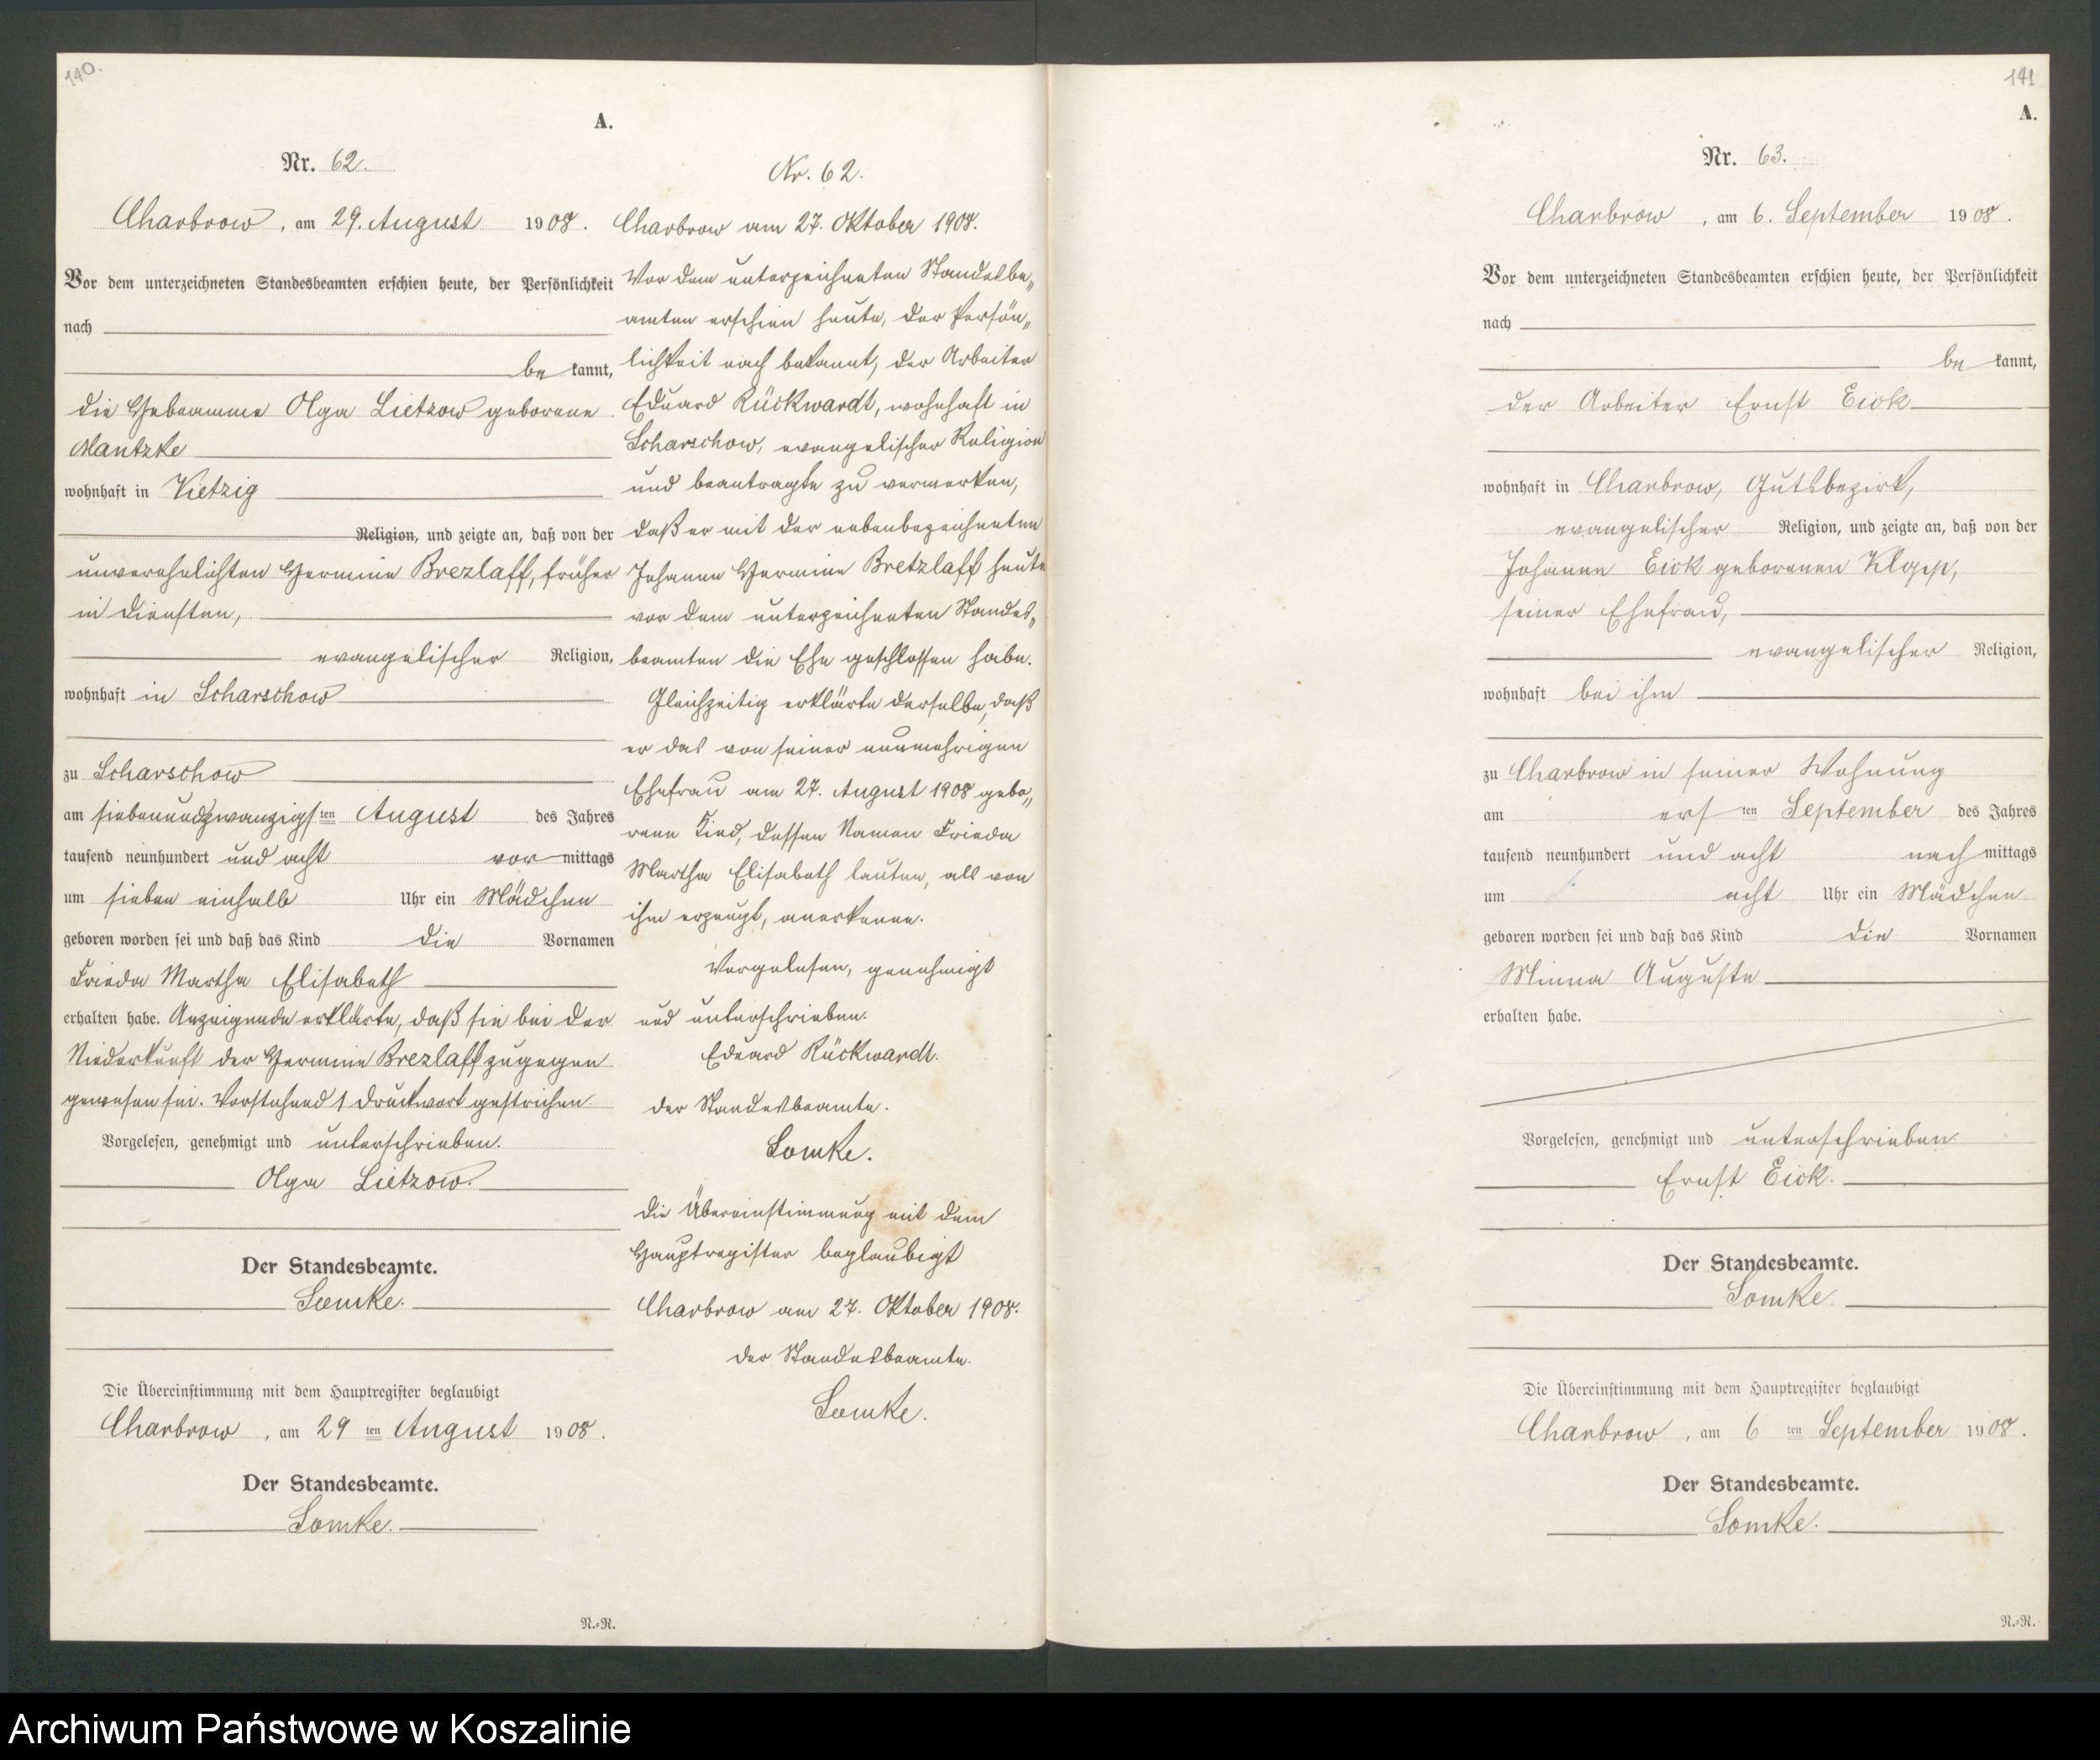 140.
A.
Nr. 62.
Charbrow, am 29. August 1908.
Vor dem unterzeichneten Standesbeamten erschien heute, der Persönlichkeit
nach
be kannt,
die Hebeamme Olga Lietzow geborene
Mantzke
wohnhaft in Vietzig
Religion, und zeigte an, daß von der
unverehelichten Hermine Brezlaff, früher
in Diensten,
evangelischer Religion,
wohnhaft in Scharschow
zu Scharschow
am siebenundzwanzigsten August des Jahres
tausend neunhundert und acht vormittags
um sieben einhalb Uhr ein Mädchen
geboren worden sei und daß das Kind die Vornamen
Frieda Martha Elisabeth
erhalten habe. Anzeigende erklärte, daß sie bei der
Niederkunft der Hermine Brezlaff zugegen
gewesen sei. Vorstehend 1 Druckwort gestrichen.
Vorgelesen, genehmigt und unterschrieben.
Olga Lietzow.
Der Standesbeamte.
Lemke.
Die Übereinstimmung mit dem Hauptregister beglaubigt
Charbrow, am 29 ten August 1908.
Der Standesbeamte.
Lemke.
N.=R.
Nr. 62.
Charbrow am 27. Oktober 1908.
Vor dem unterzeichneten Standesbe„
amten erschien heute, der Persön„
lichkeit nach bekannt, der Arbeiter
Eduard Rückwardt, wohnhaft in
Scharschow, evangelischer Religion
und beantragte zu vermerken,
daß er mit der nebenbezeichneten
Johanne Hermine Bretzlaff heute
vor dem unterzeichneten Standes„
beamten die Ehe geschlossen habe.
Gleichzeitig erklärte derselbe, daß
er das von seiner nunmehrigen
Ehefrau am 27. August 1908 gebo„
rene Kind, dessen Namen Frieda
Martha Elisabeth lauten, als von
ihm erzeugt, anerkenne.
Vorgelesen, genehmigt
und unterschrieben.
Eduard Rückwardt.
Der Standesbeamte.
Lemke.
Die Übereinstimmung mit dem
Hauptregister beglaubigt
Charbrow am 27. Oktober 1908.
Der Standesbeamte.
Lemke.
141
A.
Nr. 63.
Charbrow, am 6. September 1908.
Vor dem unterzeichneten Standesbeamten erschien heute, der Persönlichkeit
nach
be kannt,
der Arbeiter Ernst Eick
wohnhaft in Charbrow, Gutsbezirk,
evangelischer Religion, und zeigte an, daß von der
Johanne Eick geborenen Klopp,
seiner Ehefrau,
evangelischer Religion,
wohnhaft bei ihm
zu Charbrow in seiner Wohnung
am ersten September des Jahres
tausend neunhundert und acht nachmittags
um acht Uhr ein Mädchen
geboren worden sei und daß das Kind die Vornamen
Minna Auguste
erhalten habe.
Vorgelesen, genehmigt und unterschrieben.
Ernst Eick.
Der Standesbeamte.
Lemke.
Die Übereinstimmung mit dem Hauptregister beglaubigt
Charbrow, am 6 ten September 1908.
Der Standesbeamte.
Lemke.
N.=R.
Archiwum Państwowe w Koszalinie